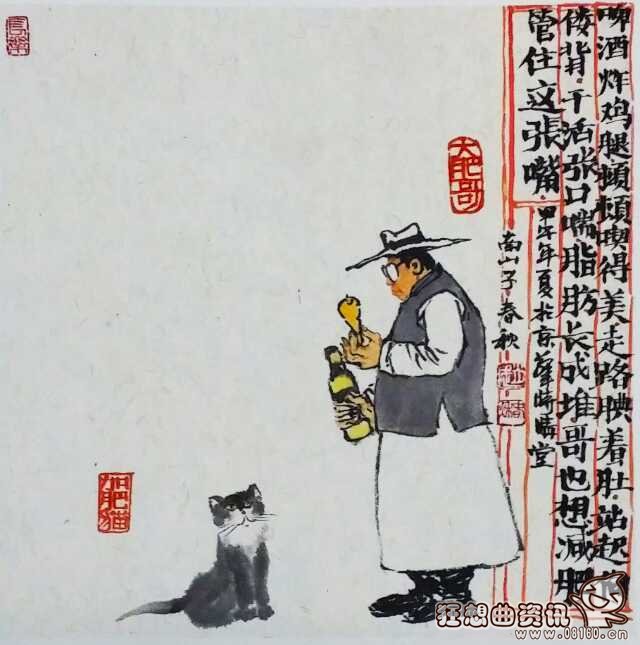 啤酒炸鸡腿顿顿喫得美走路腆着肚站起
偻背干活张口喘脂肪长成堆哥也想减肥
管住这張嘴
甲午年夏於京華
南山子春秋
大肥哥
肥猫
狂想曲资讯
www.08160.cn